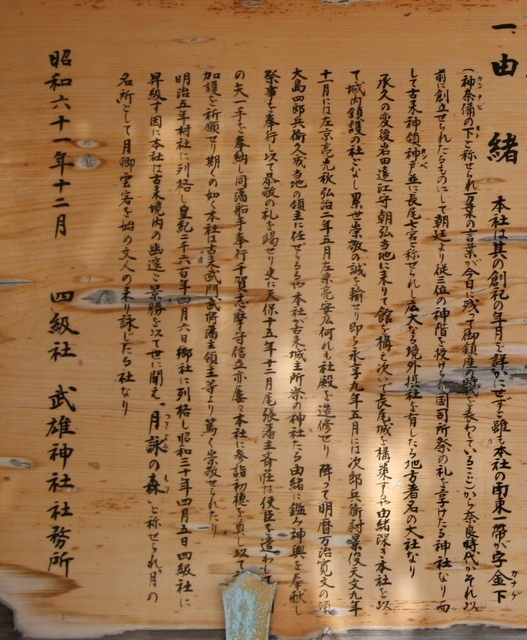 一由緒 本社は其の創祀の年月を詳かにせずと雖も本社の南東一帯が字金下
(神奈備の下)と称せられ万葉の言葉が今日に残って御鎮座の時代を表わしていることから奈良時代かそれ以
前に創立せられたるものにして朝廷より従三位の神階を授けられ国司所祭の礼を享けたる神社なり而
して古来神領神戸並に長尾七宮と称せられし広大なる境外摂社を有したる地方著名の大社なり
承久の変後岩田遠江守朝弘当地に来りて館を構え次いで長尾城を構築するや由緒深き本社を以
て城内鎮護の社となし累世崇敬の誠を輸せり即ち永享九年五月には次郎兵衛尉景俊天文九年
十一月には左京亮光秋弘治二年五月左京亮安広何れも社殿を造修せり 降って明暦万治寛文の頃
大島四郎兵衛久成当地の領主に任せらるるや本社が古来城主所祭の神社たる由緒に鑑み神輿を奉献し
祭事を奉行し以て恭敬の礼を竭せり更に天保十五年十二月尾張藩主斉荘は使臣を遣わして
の矢一手を奉納し同藩船手奉行千賀志摩守信立亦屡々本社に参詣初穂を奠し以て
加護を祈願せり斯くの如く本社は古来武門武将藩主領主等より篤く崇敬せられたり
明治五年村社に列格し皇紀二千六百年四月六日郷社に列格し昭和三十年四月五日四級社に
昇級す因に本社は古来境内の幽邃と景勝を以て世に聞え。月詠の森。と称せられ月の
名所として月卿雲客を始め文人の来り詠じたる社なり
昭和六十一年十二月 四級社 武雄神社社務所